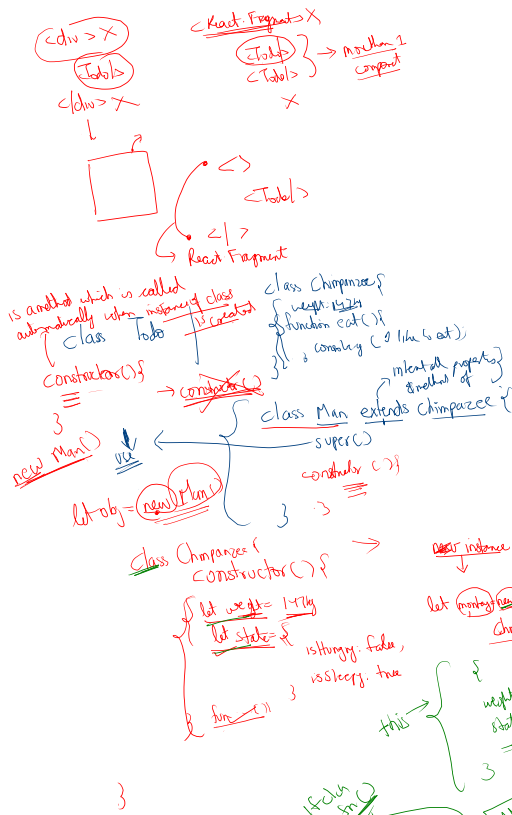 <div> X
<Todo/>
</div> X
<React.Fragmat> X
<Todo>
<Todo/>
X
more than 1
component
<>
<Todo/>
</>
React Fragment
is a method which is called
automatically when instance of class
is created
class Todo
constructor(){
}
constructor()
new Man()
use
let obj = new Man()
class Chimpanzee{
weight: 147kg
function eat(){
console.log ("I like to eat);
}
}
inherit all property
& method of
class Man extends Chimpazee {
super()
constructor (){
}
}
class Chmpanzee{
constructor(){
let weight= 147kg
let state= {
isHungry: false,
isSleepy: true
}
func()
}
}
new instance
let monkey= new
this
{
weight
state
}